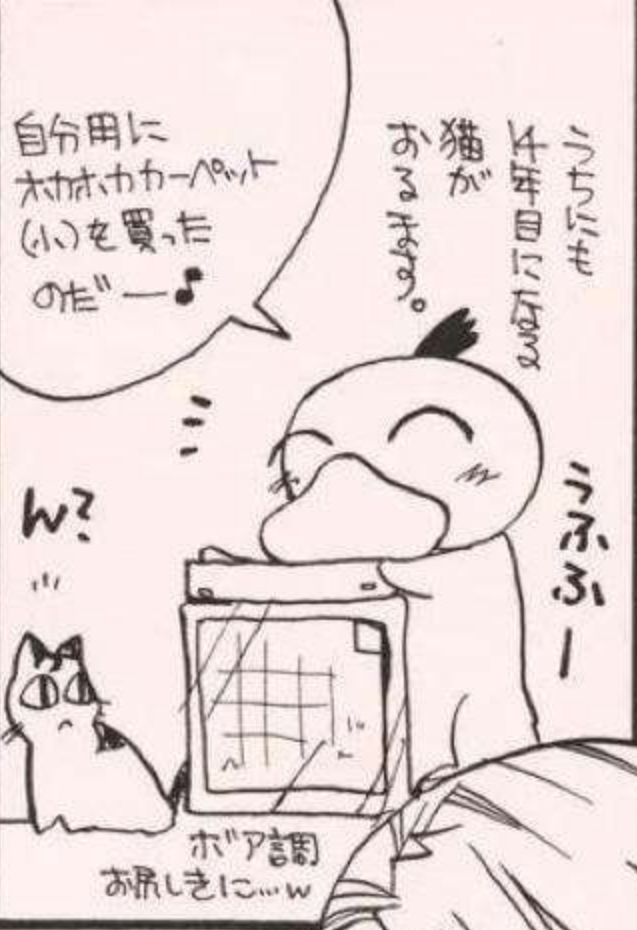 うちにも
4年目になる
猫が
おるます。
自分用に
ホカホカカーペット
(小)を買った
のだー♪
うふふー
ん?
ボア調
お尻しきに…w